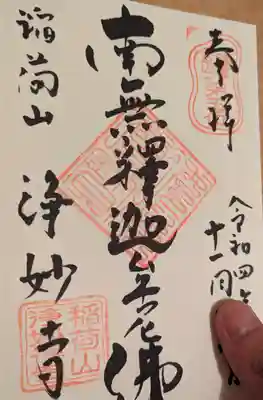 奉拝
令和四年
十一月 日
南無釋迦牟尼佛
稲荷山
浄妙寺
稲荷山
浄妙寺